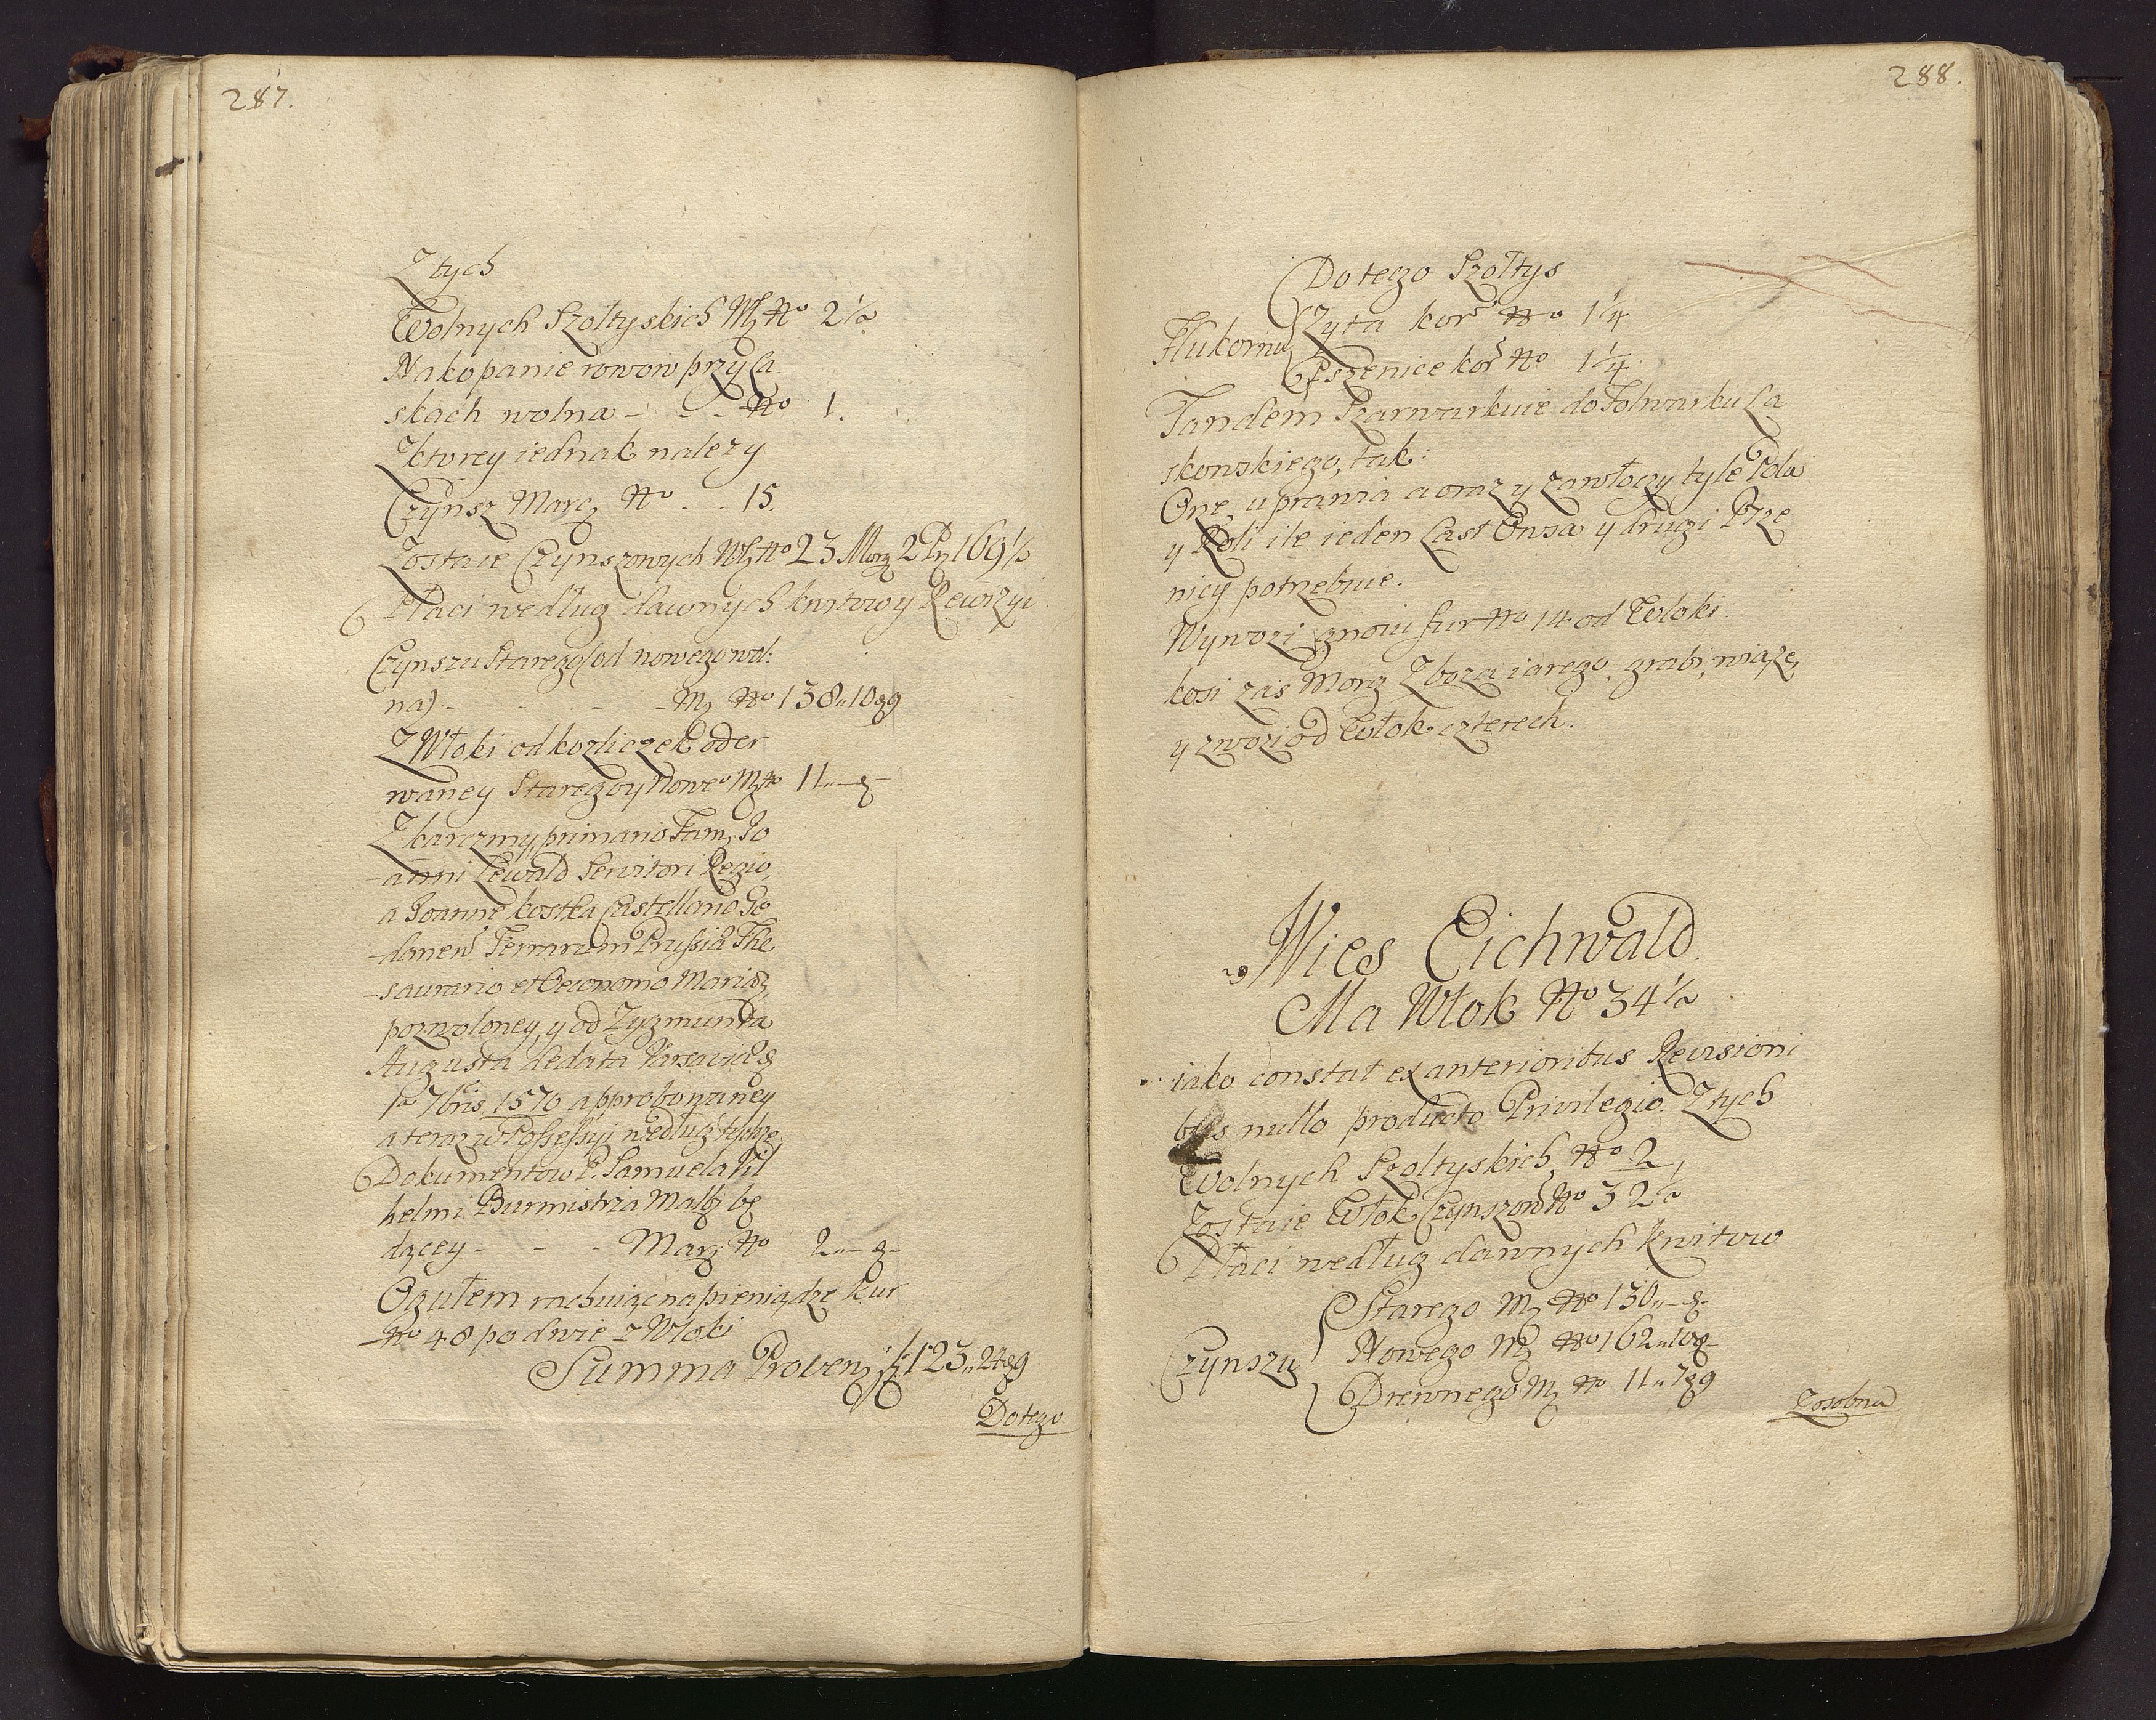 287.
Z tych
Wolnych Szołtyskich Wł No 2 1/2
Na kopanie rowow przy La
skach wolna - - - No 1.
Z ktorey iednak nalezy
Czynsz Marc No . . 15.
Zostaie Czynszowych Wł No 23 Morg 2 Pr 169 1/2
Płaci według dawnych kwitow y Rewizyi
Czynszu Starego (od nowego wol:
na) - - - - Mz No 138 ,, 10 g 9
Z Włoki od kozliczek oder
waney Starego y Nowe° Mz No 11 ,, - g -
Z karczmy, primario Fam. Jo
anni Lewald Servitori Regio,
a Joanne Kostka Castellano Ge
danen Terrarum Prussiæ The
saurario et Oeconomo Marieb
pozwoloney, y od Zygmunta
Augusta de data Varsaviæ
1a 7bris 1570 approbowaney
a teraz w Possessyi według tychze
Dokumentow P. Samuela Wil
helmi Burmistrza Malb bę
dącey - - - Marg No 2 ,, - g -
Ogułem rachuiąc na pieniądze kur
No 48 po dwie z Włoki
Summa Proven f 123 ,, 24 g 9
Do tego
288.
Do tego Szołtys
Hukornu Zyta kor No 1 1/4
Pszenice kor No 1 1/4
Tandem Szarwarkuie do Folwarku La
skowskiego, tak:
Orze, uprawia a oraz y zawłoczy tyle Pola
y Roli ile ieden Last Owsa y drugi Psze
nicy potrzebuie.
Wywozi gnoiu fur No 14 od Włoki.
kosi zas Morg Zboza iarego, grabi, wiąze,
y zwozi od Włok czterech.
Wies Eichwald.
Ma Włok No 34 1/2
iako constat ex anterioribus Revisioni
bus nullo producto Privilegio. Z tych
Wolnych Szoltyskich No 2,
Zostaie Włok Czynszow No 32 1/2
Płaci według dawnych kwitow
Starego Mz No 130 ,, - g -
Czynszu Nowego Mz No 162 ,, 10 g -
Drewnego Mz No 11 ,, 7 g 9
Zosobna